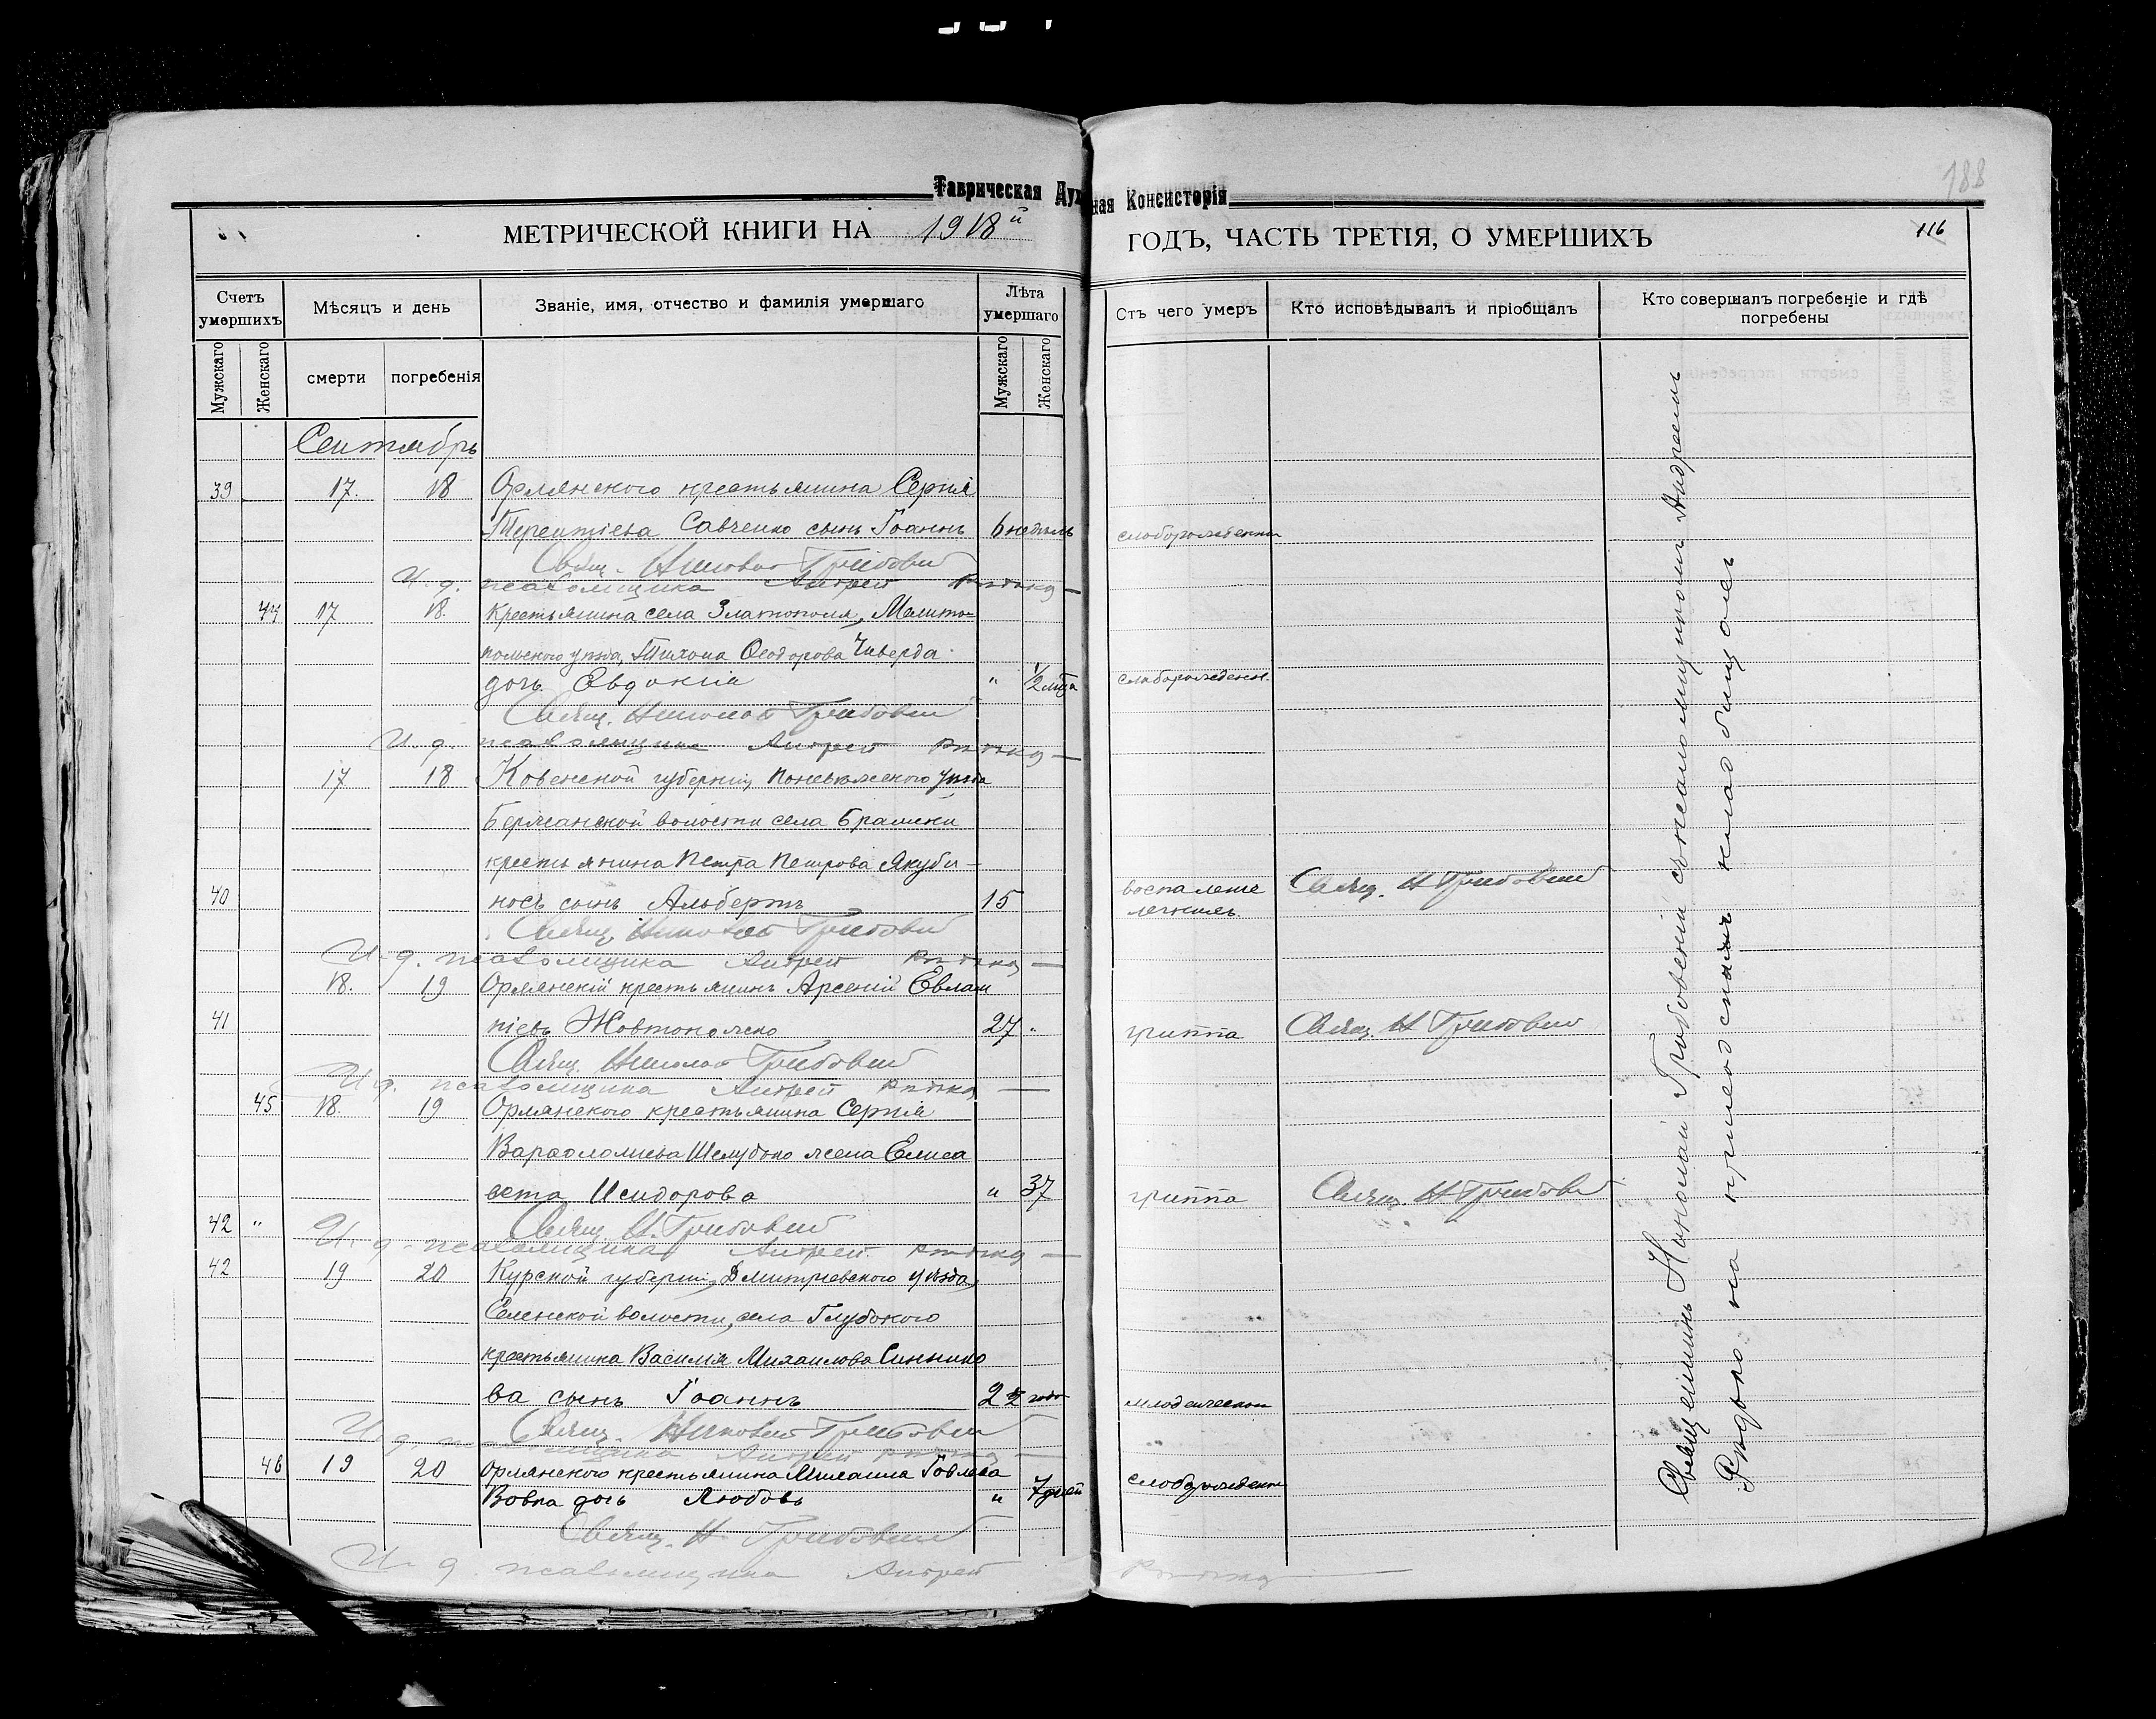 188
Таврическая Духовная Консисторія
МЕТРИЧЕСКОЙ КНИГИ НА 1918й ГОДЪ, ЧАСТЬ ТРЕТІЯ, О УМЕРШИХЪ 116
Счетъ умершихъ
Мужскаго
Женскаго
Мѣсяцъ и день
смерти
погребенія
Званіе, имя, отчество и фамилія умершаго
Лѣта умершаго
Мужскаго
Женскаго
Отъ чего умеръ
Кто исповѣдывалъ и пріобщалъ
Кто совершалъ погребеніе и гдѣ
погребены
Сентябрь
39 17. 18 Орлянского крестьянина Сергія
Терентіева Савченко сынъ Іоаннъ 6 недѣль слаборожденн
Свящ. Николай Грибовский
И. д. псаломщика Андрей
44 17 18. Крестьянина села Златополя, Мелито-
польского уѣзда, Тихона Ѳеодорова Чиверда
дочь Евдокія " 1/2 мѣца слаборожденн.
Свящ. Николай Грибовский
И. д. псаломщика Андрей
17 18 Ковенской губерніи, Поневѣжского уѣзда
волости села
крестьянина Петра Петрова Якуби-
40 носъ сынъ Альбертъ 15 воспаленіе Свящ. Н Грибовский
легкихъ
Свящ. Николай Грибовский
И. д. псаломщика Андрей
18. 19 Орлянскій крестьянинъ Арсеній Евлам
41 піевъ Жовтоножко 27 " гриппа Свящ. Н Грибовский
Свящ. Николай Грибовский
И. д. псаломщика Андрей
45 18. 19 Орлянского крестьянина Сергія
Варѳоломіева Шелудько жена Елиса
вета Исидорова " 37 гриппа Свящ. Н Грибовский
42 " Свящ. Н. Грибовский
И. д. псаломщика Андрей
42 19 20 Курской губерніи, Дмитріевского уѣзда,
волости, села Глубокого
крестьянина Василія Михаилова Синнико
ва сынъ Іоаннъ 2 года младенческой
Свящ. Николай Грибовский
И. д. псаломщика Андрей
46 19 20 Орлянского крестьянина Михаила Іовлева
Вовка дочь Любовь " 7 дней слаборожденн
Свящ. Н. Грибовский
И. д. псаломщика Андрей
Священникъ Николай Грибовскій съ псаломщикомъ Андреемъ
на приходскомъ кладбищѣ